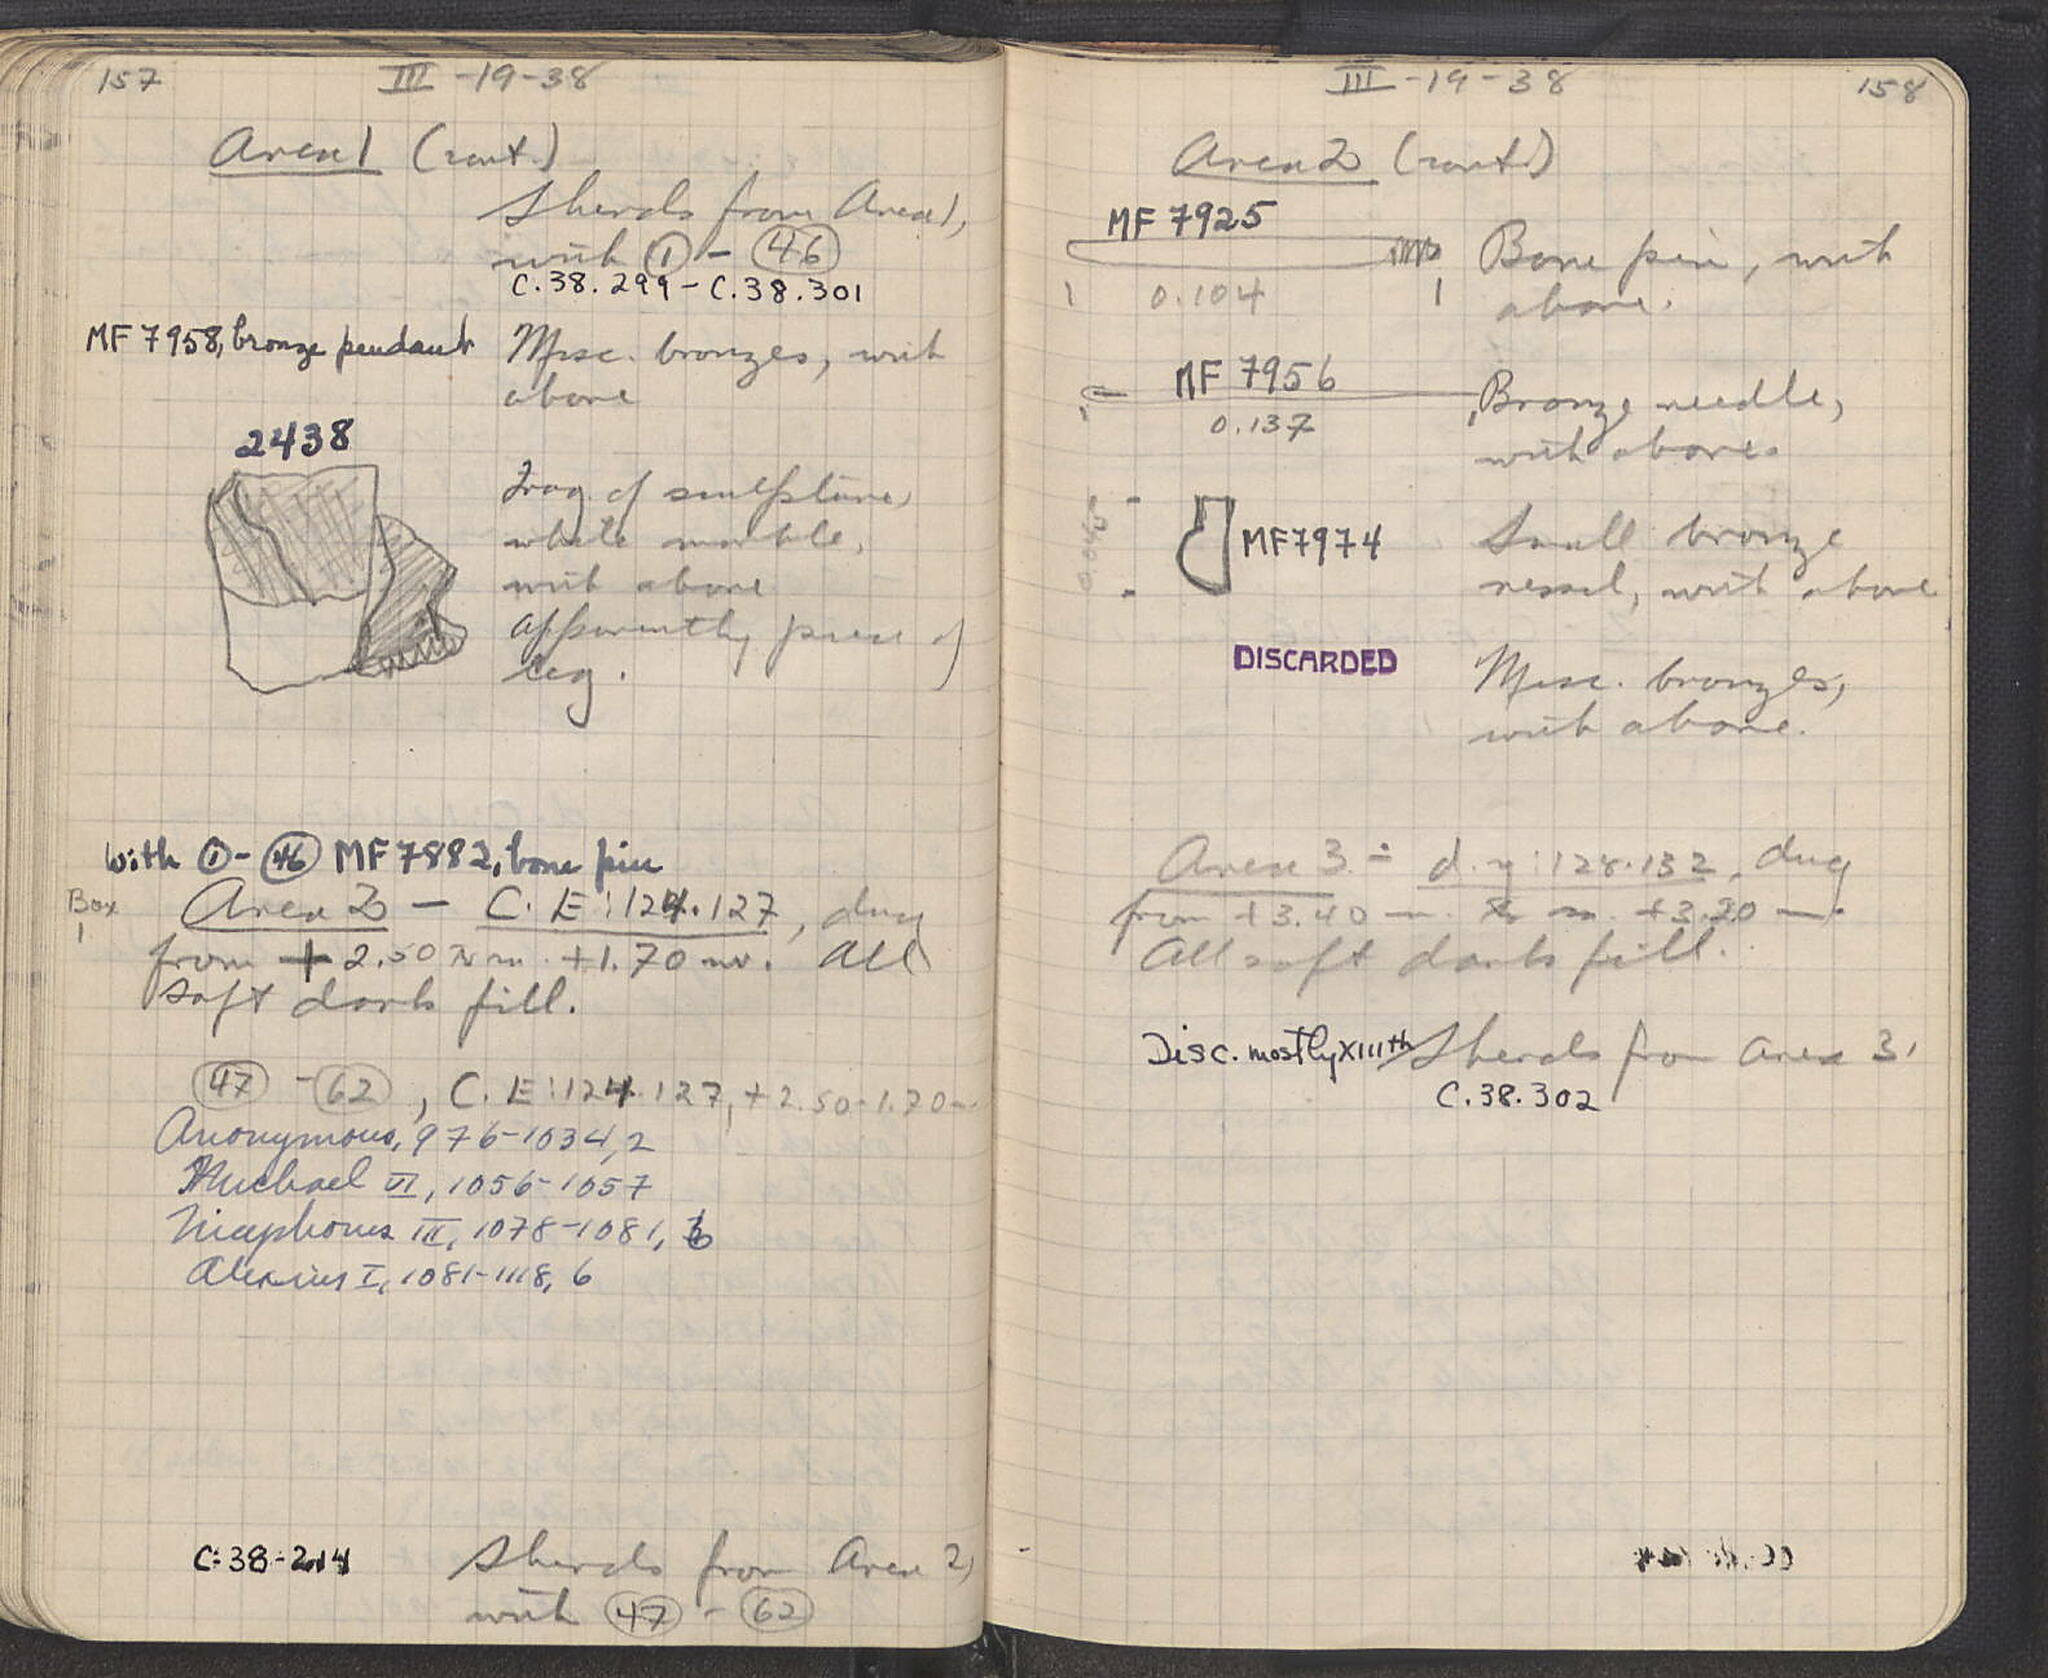 157
III-19-38
Area 1 (cont.)
Sherds from Area 1,
with 1 - 46
C.38.299 - C.38.301
MF 7958, bronze pendant
Misc. bronzes, with
above
2438
Frag. of sculpture,
white marble,
with above
Apparently piece of
leg.
With 1 - 46 MF 7882, bone pin
Box
1
Area 2 - C. E:124.127, dug
from +2.50 m. +1.70 m. All
soft dark fill.
47 - 62, C. E:124.127, +2.50-1.70m.
Anonymous, 976-1034, 2
Michael VI, 1056-1057
Nicephorus III, 1078-1081,
Alexius I, 1081-1118, 6
C-38-214
Sherds from Area 2,
with 47 - 62
III-19-38
158
Area 2 (cont.)
MF 7925
0.104
Bone pin, with
above.
MF 7956
0.137
Bronze needle,
with above.
MF7974
Small bronze
vessel, with above
DISCARDED
Misc. bronzes,
with above.
Area 3 - :128.132, dug
from +3.40 m. to m. +3.20 m.
All soft dark fill.
Disc. mostly XIIIth
Sherds from Area 3,
C.38.302